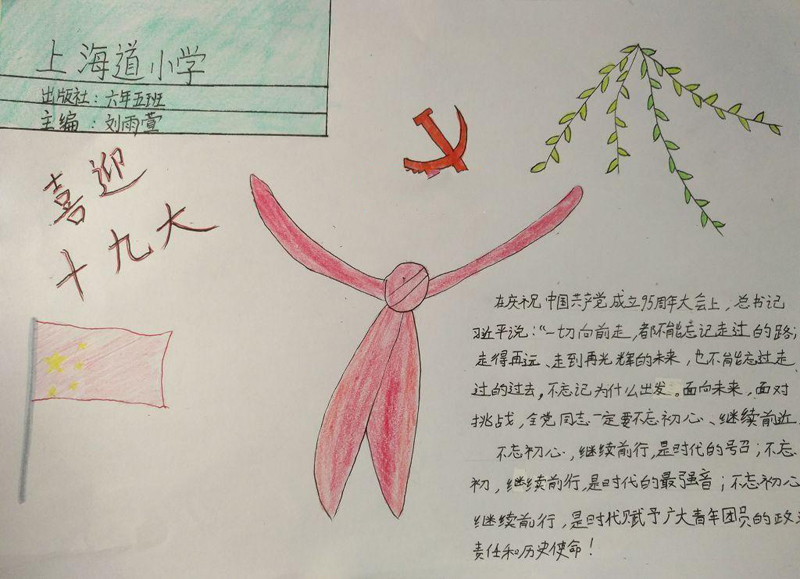 上海道小学
出版社：六年五班
主编：刘雨萱
喜迎
十九大
在庆祝中国共产党成立95周年大会上，总书记
习近平说："一切向前走，都不能忘记走过的路；
走得再远、走到再光辉的未来，也不能忘过走
过的过去，不忘记为什么出发。面向未来，面对
挑战，全党同志一定要不忘初心、继续前进
不忘初心，继续前行，是时代的号召；不忘
初，继续前行，是时代的最强音；不忘初心
继续前行，是时代赋予广大青年团员的政
责任和历史使命！